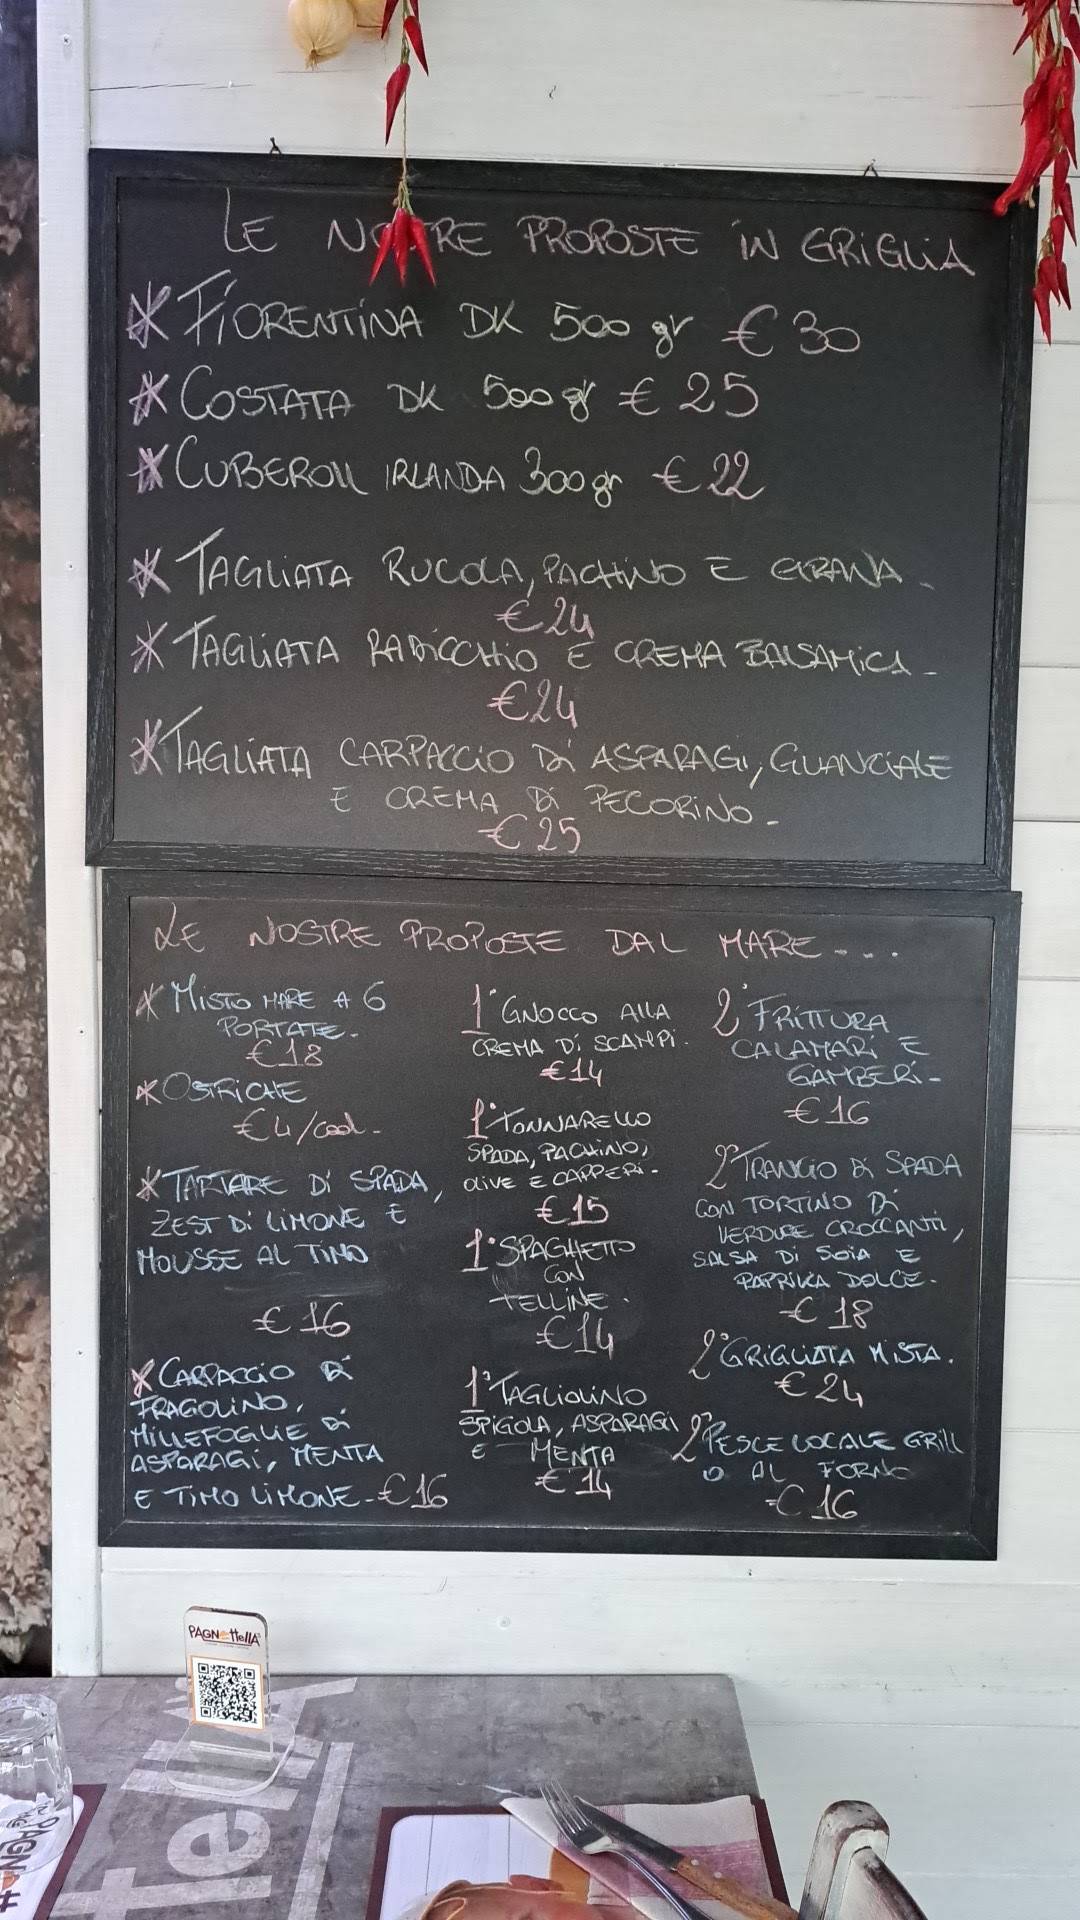 LE NOSTRE PROPOSTE IN GRIGLIA
* FIORENTINA DK 500 gr € 30
* COSTATA DK 500 gr € 25
* CUBEROLL IRLANDA 300 gr € 22
* TAGLIATA RUCOLA, PACHINO E GRANA.
€ 24
* TAGLIATA RADICCHIO E CREMA BALSAMICA.
€ 24
* TAGLIATA CARPACCIO DI ASPARAGI, GUANCIALE
E CREMA DI PECORINO.
€ 25
LE NOSTRE PROPOSTE DAL MARE...
* MISTO MARE A 6
PORTATE.
€ 18
* OSTRICHE
€ 4/cad.
* TARTARE DI SPADA,
ZEST DI LIMONE E
MOUSSE AL TIMO
€ 16
* CARPACCIO DI
FRAGOLINO,
MILLEFOGLIE DI
ASPARAGI, MENTA
E TIMO LIMONE. € 16
1° GNOCCO ALLA
CREMA DI SCAMPI.
€ 14
1° TONNARELLO
SPADA, PACHINO,
OLIVE E CAPPERI.
€ 15
1° SPAGHETTO
CON
TELLINE.
€ 14
1° TAGLIOLINO
SPIGOLA, ASPARAGI
E MENTA
€ 14
2° FRITTURA
CALAMARI E
GAMBERI.
€ 16
2° TRANCIO DI SPADA
CON TORTINO DI
VERDURE CROCCANTI,
SALSA DI SOIA E
PAPRIKA DOLCE.
€ 18
2° GRIGLIATA MISTA.
€ 24
2° PESCE LOCALE GRILL
O AL FORNO
€ 16
PAGNOTTELLA